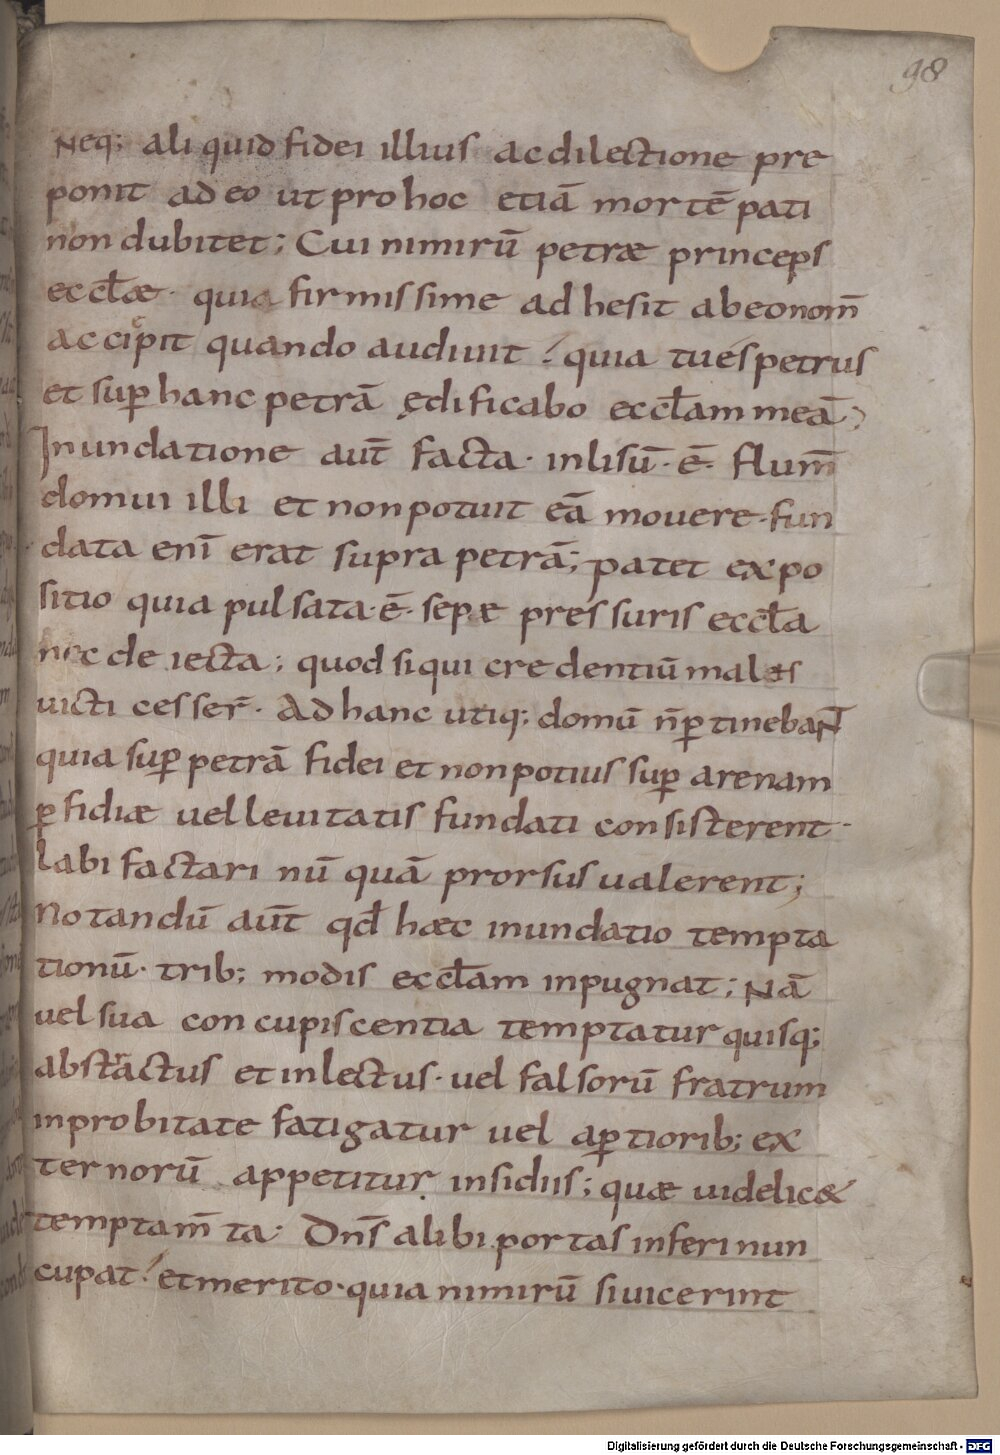 98
Neq; aliquid fidei illius ac dilectione pre
ponit adeo ut pro hoc etiā mortē pati
non dubitet; Cui nimirū petræ princeps
eccl̄æ· quia firmissime adhesit ab eo nom̄
accepit quando audiuit ! quia tu es petrus
et sup̱ hanc petrā ędificabo eccl̄am meā;
Inundatione aut̄ facta· inlisū·ē· flum̄
domui illi et non potuit eā mouere· fun
data eni̅ erat supra petrā; patet expo
sitio quia pulsata·ē· sepæ pressuris eccl̄a
nec deiecta; quod siqui credentiū malis
uicti cesser̄· Ad hanc utiq; domū n̄ p̱tinebant
quia sup̱ petrā fidei et non potius sup̱ arenam
p̱fidiæ uel leuitatis fundati consisterent·
labi factari nū quā prorsus ualerent;
Notandū aut̄ qd̄ hæc inundatio tempta
tionū· trib; modis eccl̄am inpugnat; Nā
uel sua concupiscentia temptatur quisq;
abstractus et inlectus· uel falsorū fratrum
inprobitate fatigatur uel ap̱tiorib; ex
ternorū appetitur insidiis; quæ uidelic&
temptam̄ta· Dn̄s alibi portas inferi nun
cupat ! et merito· quia nimirū si uicerint
Digitalisierung gefördert durch die Deutsche Forschungsgemeinschaft - DFG